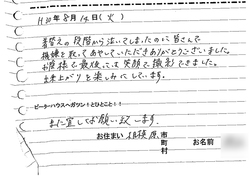 H30年8月14日(火)
着替えの段階から泣いてしまったのに皆さんで
機嫌を取ってあやしていただきありがとうございました。
お陰様で最後は笑顔で撮影できました。
仕上がりを楽しみにしています。
ピーターハウスへガツン！とひとこと！！
また宜しくお願い致します。
お住まい 相模原 市
町
村
お名前